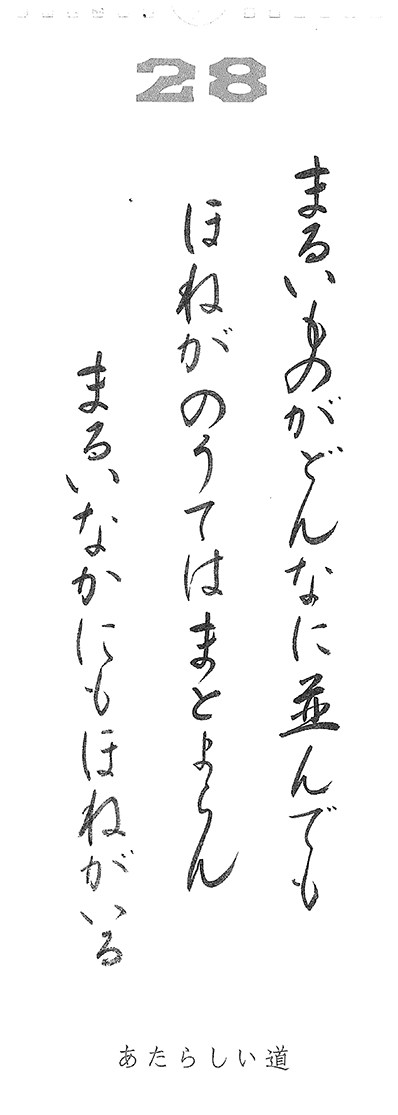 28
まるいものがどんなに並んでも
ほねがのうてはまとまらん
まるいなかにもほねがいる
あたらしい道